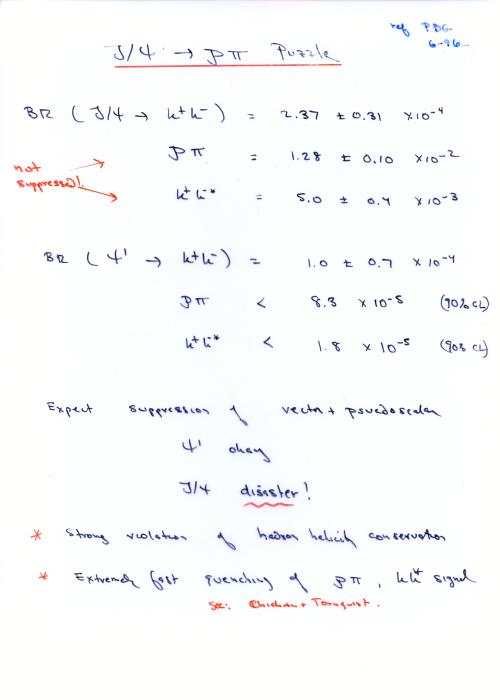 ref PDG
6-96
J/ψ → ρπ Puzzle
BR ( J/ψ → k⁺k⁻ ) = 2.37 ± 0.31 ×10⁻⁴
ρπ = 1.28 ± 0.10 ×10⁻²
not
suppressed!
k⁺k⁻* = 5.0 ± 0.4 ×10⁻³
BR ( ψ' → k⁺k⁻ ) = 1.0 ± 0.7 ×10⁻⁴
ρπ < 8.3 ×10⁻⁵ (90% CL)
k⁺k⁻* < 1.8 ×10⁻⁵ (90% CL)
Expect suppression of vector + psuedoscalar
ψ' okay
J/ψ disaster!
* Strong violation of hadron helicity conservation
* Extremely fast quenching of ρπ, kk* signal
See: + Tornquist.